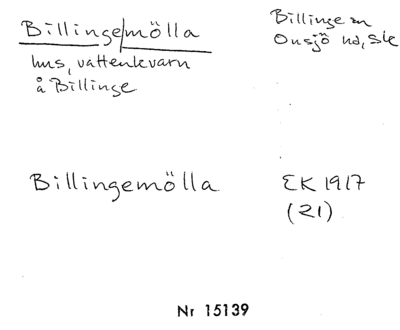 Billinge/mölla
Billinge sn
Onsjö hd, Sk
hus, vattenkvarn
å Billinge
Billingemölla
EK 1917
(21)
Nr 15139